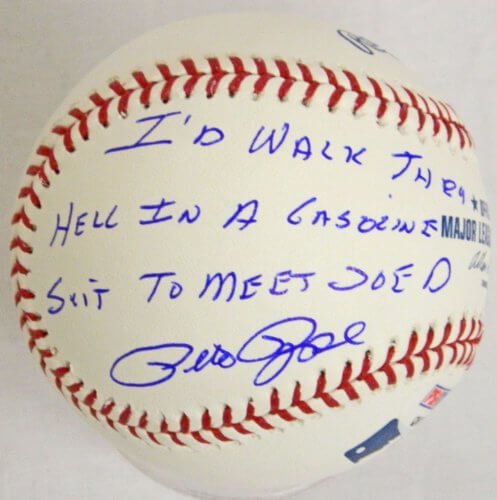 I'D WALK THRU
HELL IN A GASOLINE
MAJOR LEA
SUIT TO MEET JOE D
Pete Rose